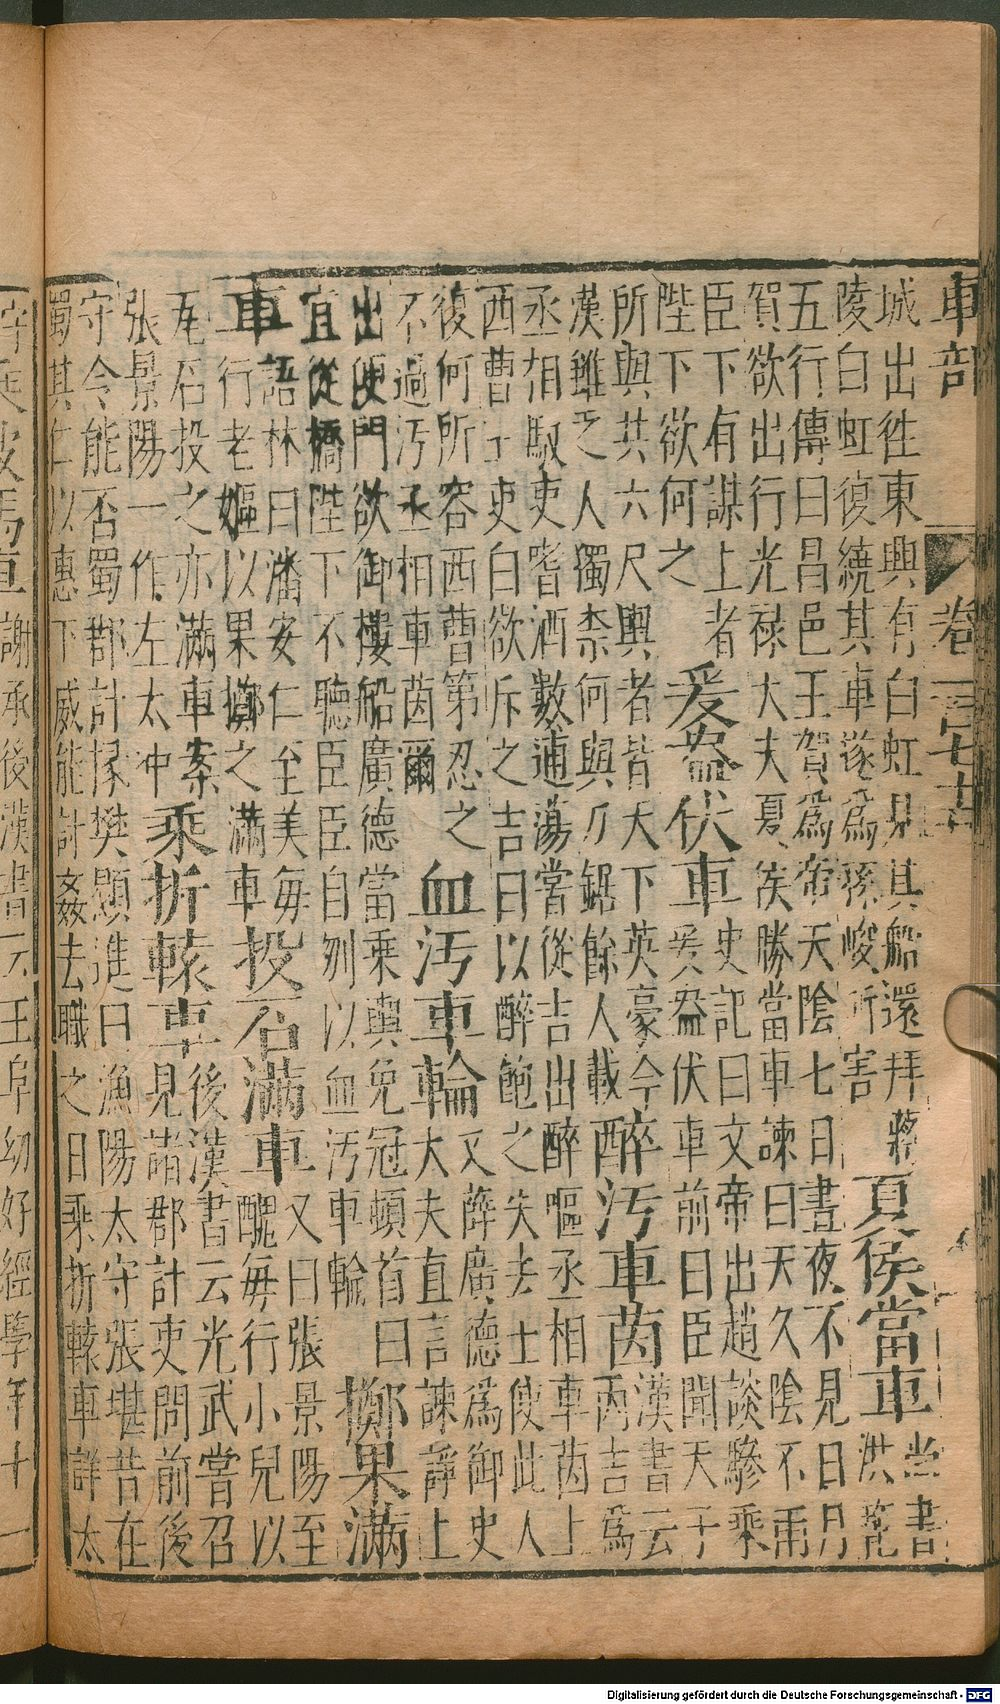 車部 卷一百七十
城出徃東興有白虹見其船還拜蔣
陵白虹復繞其車遂為孫峻所害
夏侯當車
尚書
洪範
五行傳曰昌邑王賀為帝天陰七日晝夜不見日月
賀欲出行光祿大夫夏侯勝當車諫曰天久陰不雨
臣下有謀上者
陛下欲何之
爰盎伏車
史記曰文帝出趙談驂乘
爰盎伏車前曰臣聞天子
所與共六尺輿者皆天下英豪今
漢雖乏人獨柰何與刀鋸餘人載
醉汚車茵
漢書云
丙吉為
丞相馭吏嗜酒數逋蕩嘗從吉出醉嘔丞相車茵上
西曹主吏白欲斥之吉曰以醉飽之失去士使此人
復何所容西曹第忍之
不過汚丞相車茵爾
血汚車輪
又薛廣德為御史
大夫直言諫諍上
出便門欲御樓船廣德當乘輿免冠頓首曰
宜從橋陛下不聽臣臣自刎以血汚車輪
擲果滿
車
語林曰潘安仁至美每
行老嫗以果擲之滿車
投石滿車
又曰張景陽至
醜每行小兒以
瓦石投之亦滿車案
張景陽一作左太冲
乘折轅車
後漢書云光武嘗召
見諸郡計吏問前後
守令能否蜀郡計掾樊顯進曰漁陽太守張堪昔在
蜀其仁以惠下威能討姦去職之日乘折轅車詳太
馬車
謝承後漢書云王阜幼好經學年十一
Digitalisierung gefördert durch die Deutsche Forschungsgemeinschaft - DFG